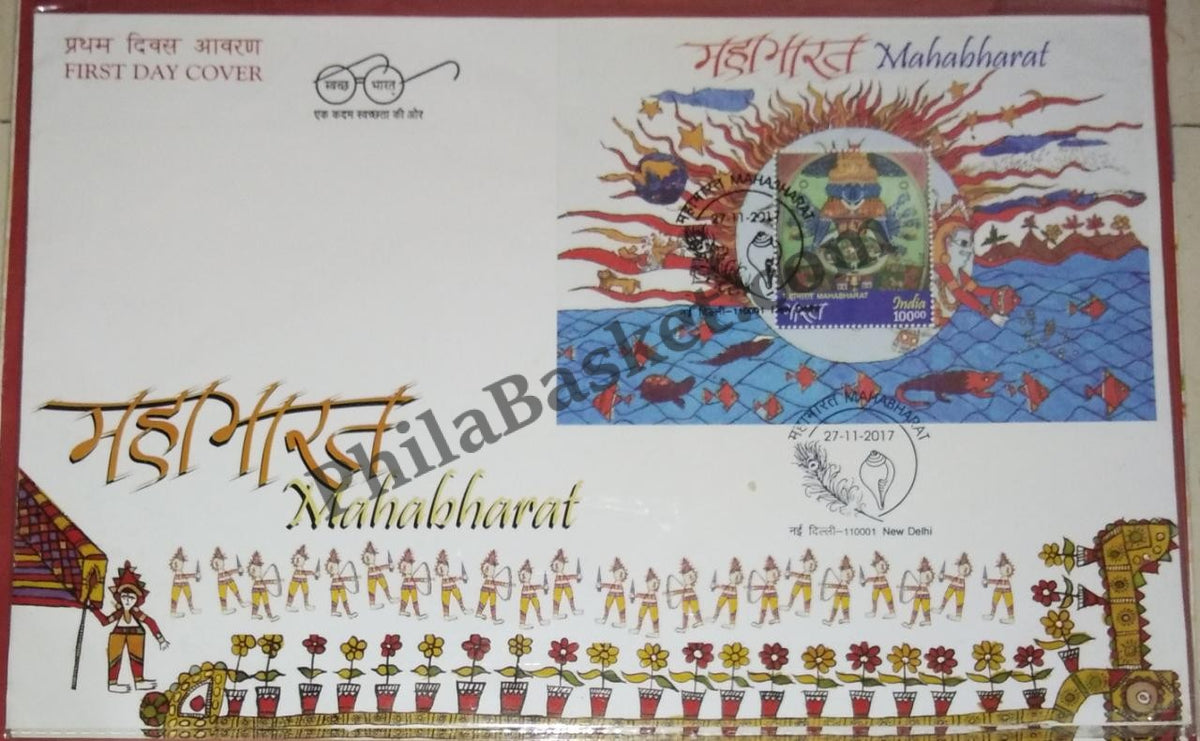 प्रथम दिवस आवरण
FIRST DAY COVER
स्वच्छ भारत
एक कदम स्वच्छता की ओर
महाभारत Mahabharat
महाभारत MAHABHARAT
27-11-2017
महाभारत MAHABHARAT
भारत
India
100.00
नई दिल्ली-110001
PhilaBasket.com
महाभारत
Mahabharat
महाभारत MAHABHARAT
27-11-2017
नई दिल्ली-110001 New Delhi